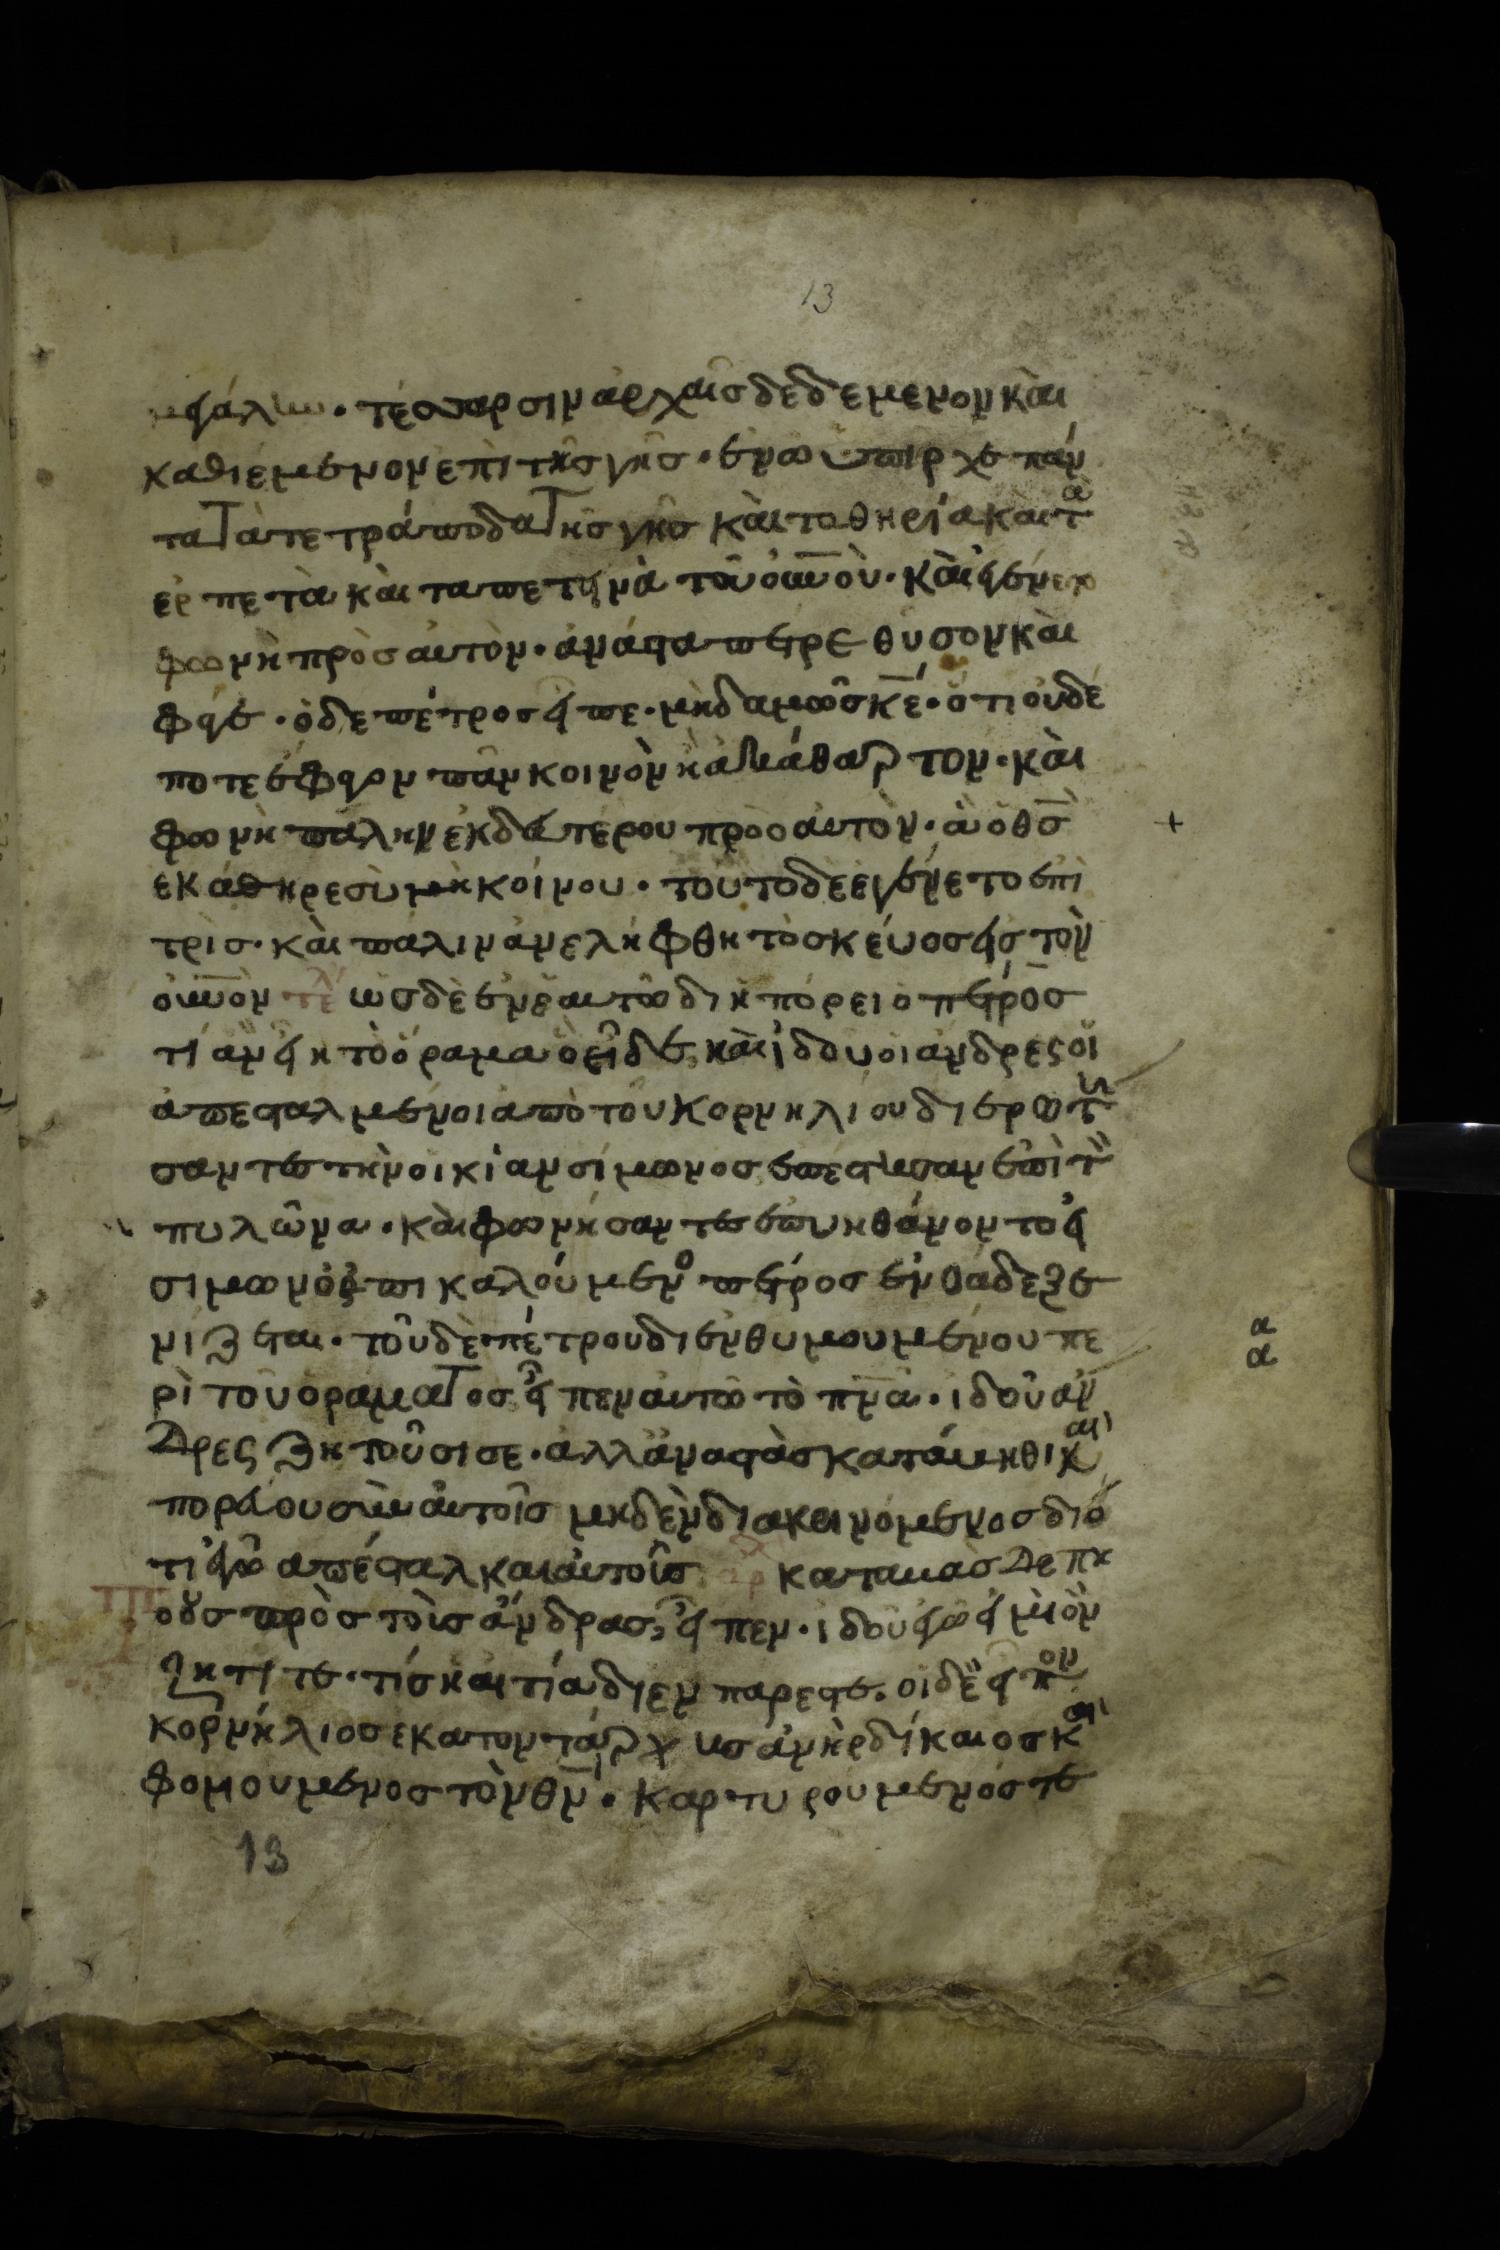 13
μεγάλην· τέσσαρσιν ἀρχαῖς δεδεμενον καὶ
καθιέμενον ἐπὶ τῆς γῆς· ἐν ὦ ὑπῆρχε πάν
τα τὰ τετράποδα τῆς γῆς καὶ τα θηρία καὶ τὰ
ἑρπετὰ καὶ τα πετηνὰ τοῦ ου̅νου̅· καὶ ἐγένετο
φωνὴ πρὸς αὐτὸν· ἀνάστα πέτρε θύσον καὶ
φάγε· ὁ δε πέτρος εἶπε· μηδαμῶς κ̅ε̅· ὅτι οὐδέ
ποτε ἔφαγον πᾶν κοινὸν ἢ ἀκάθαρτον· καὶ
φωνὴ πάλην ἐκ δευτέρου πρὸς αὐτὸν· ἃ ὁ θ̅ς̅
εκαθηρε σὺ μὴ κοίνου· τοῦτο δὲ ἐγένετο ἐπὶ
τρὶς· καὶ πάλιν ἀνελήφθη τὸ σκεύος εἰς τὸν
ου̅νον̅ τε ὡς δὲ ἐν ἑαυτῶ διηπόρει ὁ πέτρος
τί ἂν εἴη τὸ ὅραμα ὃ εἶδε, καὶ ἰδου οἱ ἄνδρες οἱ
ἀπεσταλμένοι ἀπὸ τοῦ Κορνηλίου διερωτή
σαντες τὴν οικίαν σίμωνος ἐπέστησαν ἐπὶ τὸν
πυλῶνα· καὶ φωνήσαντες ἐπυνθάνοντο εἰ
σιμων ὁ ἐπικαλούμενο πέτρος ἐνθάδε ξε
νίζεται· τοῦ δὲ πέτρου διενθυμουμένου πε
ρὶ τοῦ ὁράματος εἶπεν αὐτῶ τὸ πν̅α̅· ἰδοῦ ἄν
δρες ζητοῦσι σε· ἀλλὰ ἀναστὰς κατάβηθι καὶ
πορεύου σὺν αὐτοῖς μηδὲν διακρινόμενος διό
τι ἐγὼ ἀπέσταλκα αὐτοῖς αρ καταβὰς δε πε
οὓς πρὸς τοὶς ἄνδρας, εἶπεν· ἰδοῦ ἐγὼ εἰμι ὃν
ζητῖτε· τίς ἡ αιτία δι ην παρεστε· οἱ δὲ εἶπον
κορνήλιος εκατοντάρχης ἀνὴρ δίκαιος καὶ
φοβουμενος τὸν θ̅ν̅· Καρτυρουμενός τε
13
+
α
α